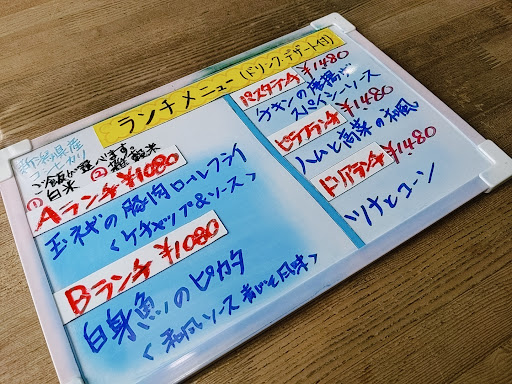 ランチメニュー (ドリンク・デザート付)
新潟県産
コシヒカリ
ご飯が選べます。
①白米 ②雑穀米
Aランチ ¥1080
玉ネギの豚肉ロールフライ
<ケチャップ&ソース>
Bランチ ¥1080
白身魚のピカタ
<和風ソース 青じそ風味>
パスタランチ ¥1480
チキンの唐揚げ
スパイシーソース
ピラフランチ ¥1480
ハムと高菜の和風
ドリアランチ ¥1480
ツナとコーン